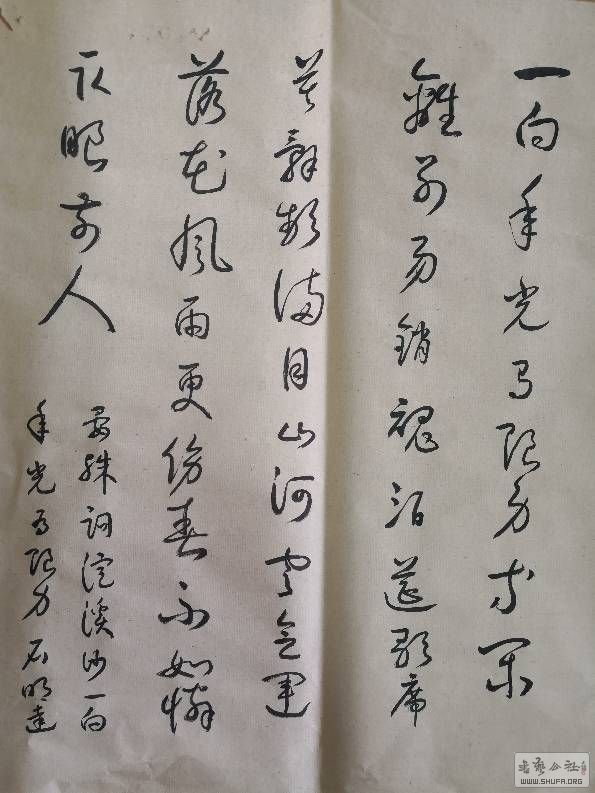 一向年光有限身等閒
離別易銷魂酒筵歌席
莫辭頻滿目山河空念遠
落花風雨更傷春不如憐
取眼前人
晏殊詞浣溪沙一向
年光有限身石明達
书艺公社
WWW.SHUFA.ORG